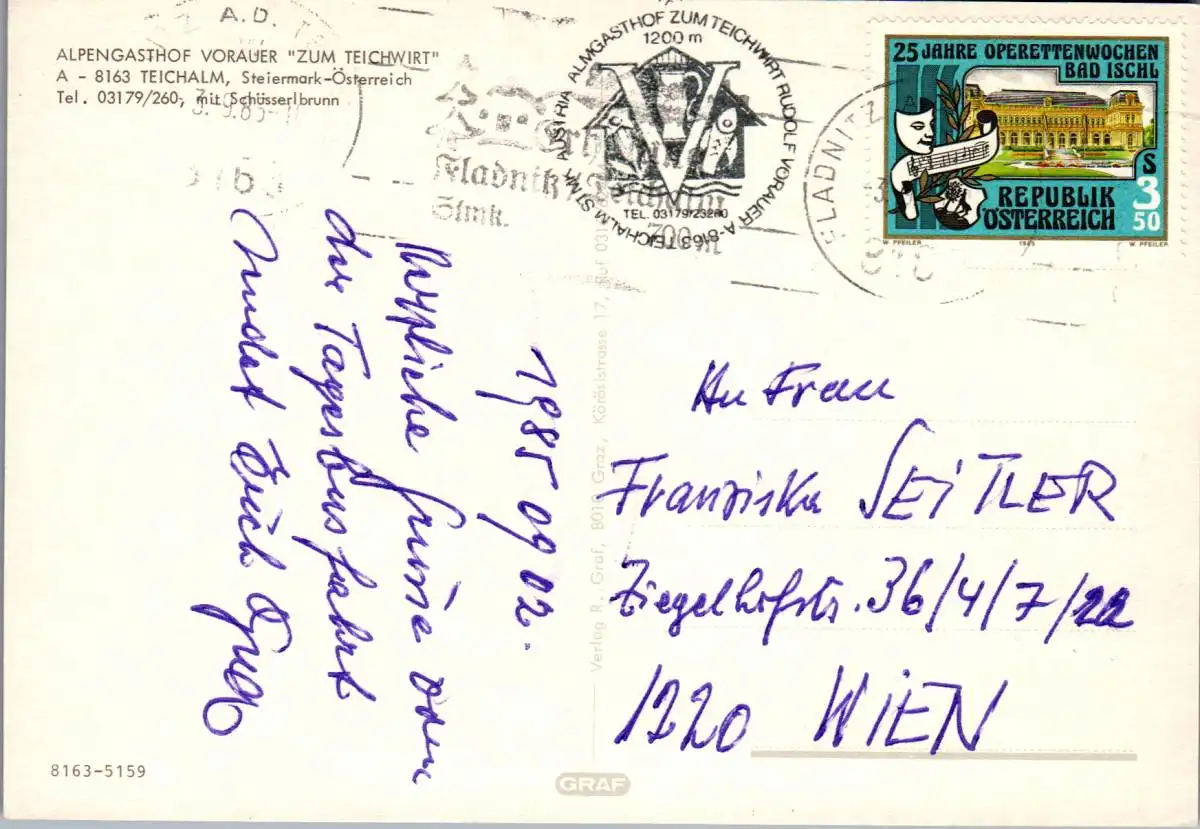 ALPENGASTHOF VORAUER "ZUM TEICHWIRT"
A - 8163 TEICHALM, Steiermark-Österreich
Tel. 03179/260, mit Schüsserlbrunn
A.D.
3.9.85
8163
Fladnitz/Teichalm
Stmk.
700m
ALMGASTHOF ZUM TEICHWIRT RUDOLF VORAUER A-8163 TEICHALM STMK AUSTRIA
1200 m
TEL. 03179/23260
FLADNITZ
25 JAHRE OPERETTENWOCHEN
BAD ISCHL
REPUBLIK
ÖSTERREICH
S
3
50
W. PFEILER
1985
W. PFEILER
1985 09 02.
Herzliche Grüsse von
der Tagesbusfahrt
Erich
Verlag R. Graf, 8010 Graz, Körösistrasse 17, Ruf 031
An Frau
Franziska SEITLER
Ziegelhofstr. 36/4/7/22
1220 WIEN
8163-5159
GRAF